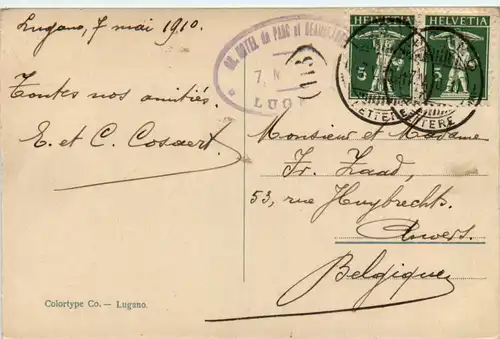 Lugano, 7 mai 1910.
Toutes nos amitiés.
E. et C. Cosaert.
GD. HOTEL du PARC et BEAU
7.
LUG
HELVETIA HELVETIA
5 5
LETTERE
Monsieur et Madame
Fr. Zaad,
53, rue Huybrechts.
Anvers.
Belgique
Colortype Co. — Lugano.